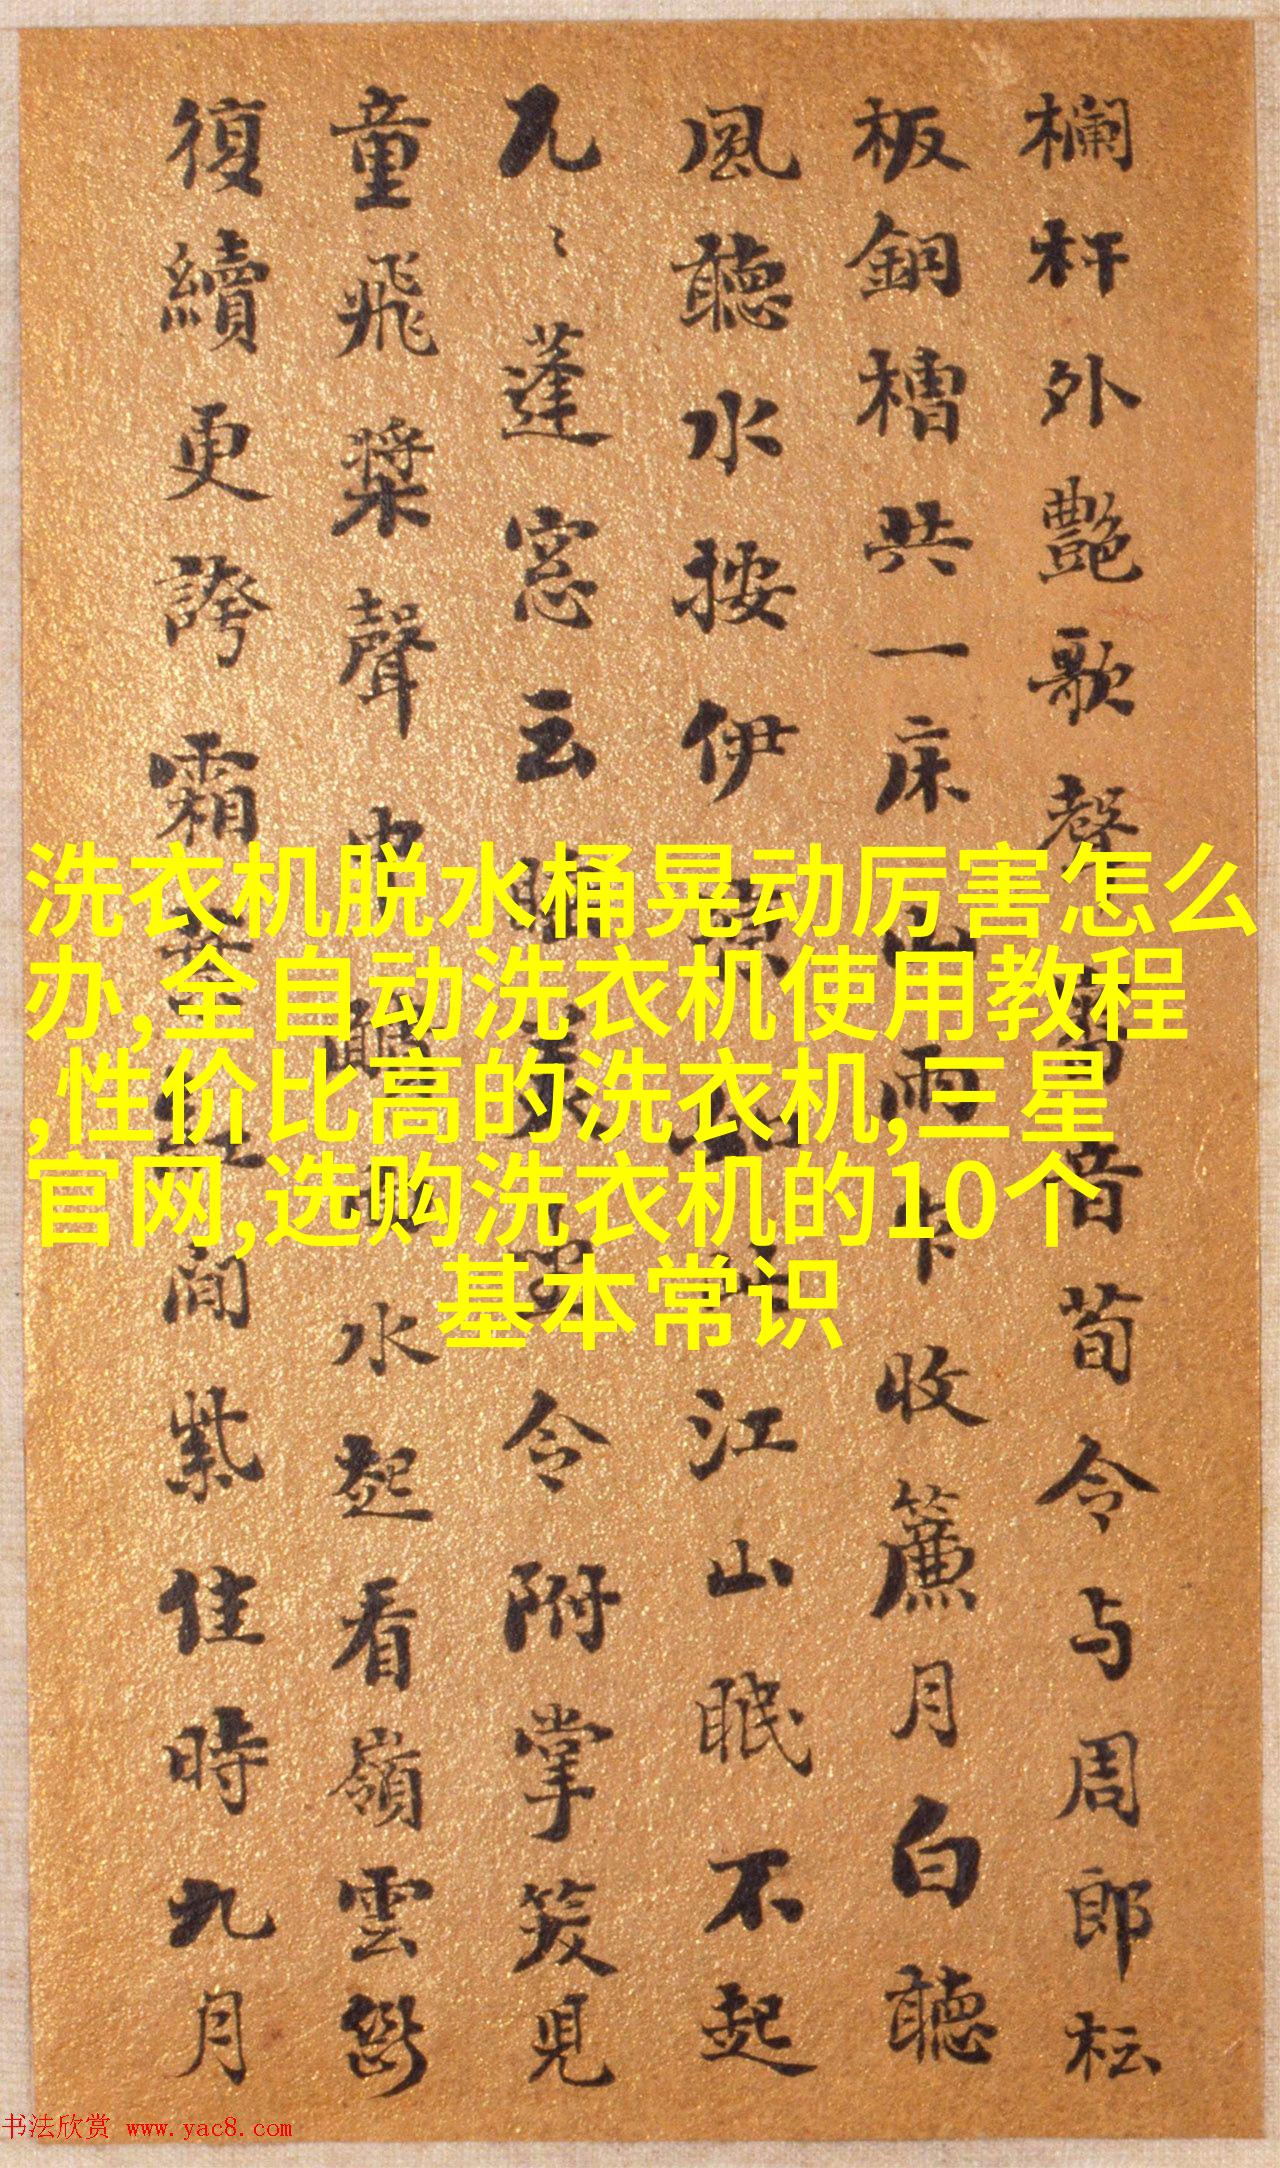 欄杆外艷歌聲音荀令与周郎枟
板銅槽共一床山雨乍收簾月白聽
風聽水按伊江山眠不起
凡〻蓬窓云令附掌笑見
童飛槳聲水起看嶺雲
復續更誇霜間紫佳時九月
洗衣机脱水桶晃动厉害怎么
办,全自动洗衣机使用教程
,性价比高的洗衣机,三星
官网,选购洗衣机的10个
基本常识
书法欣赏 www.yac8.com